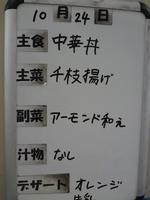 10月24日
主食 中華丼
主菜 千枝揚げ
副菜 アーモンド和え
汁物 なし
デザート オレンジ
牛乳